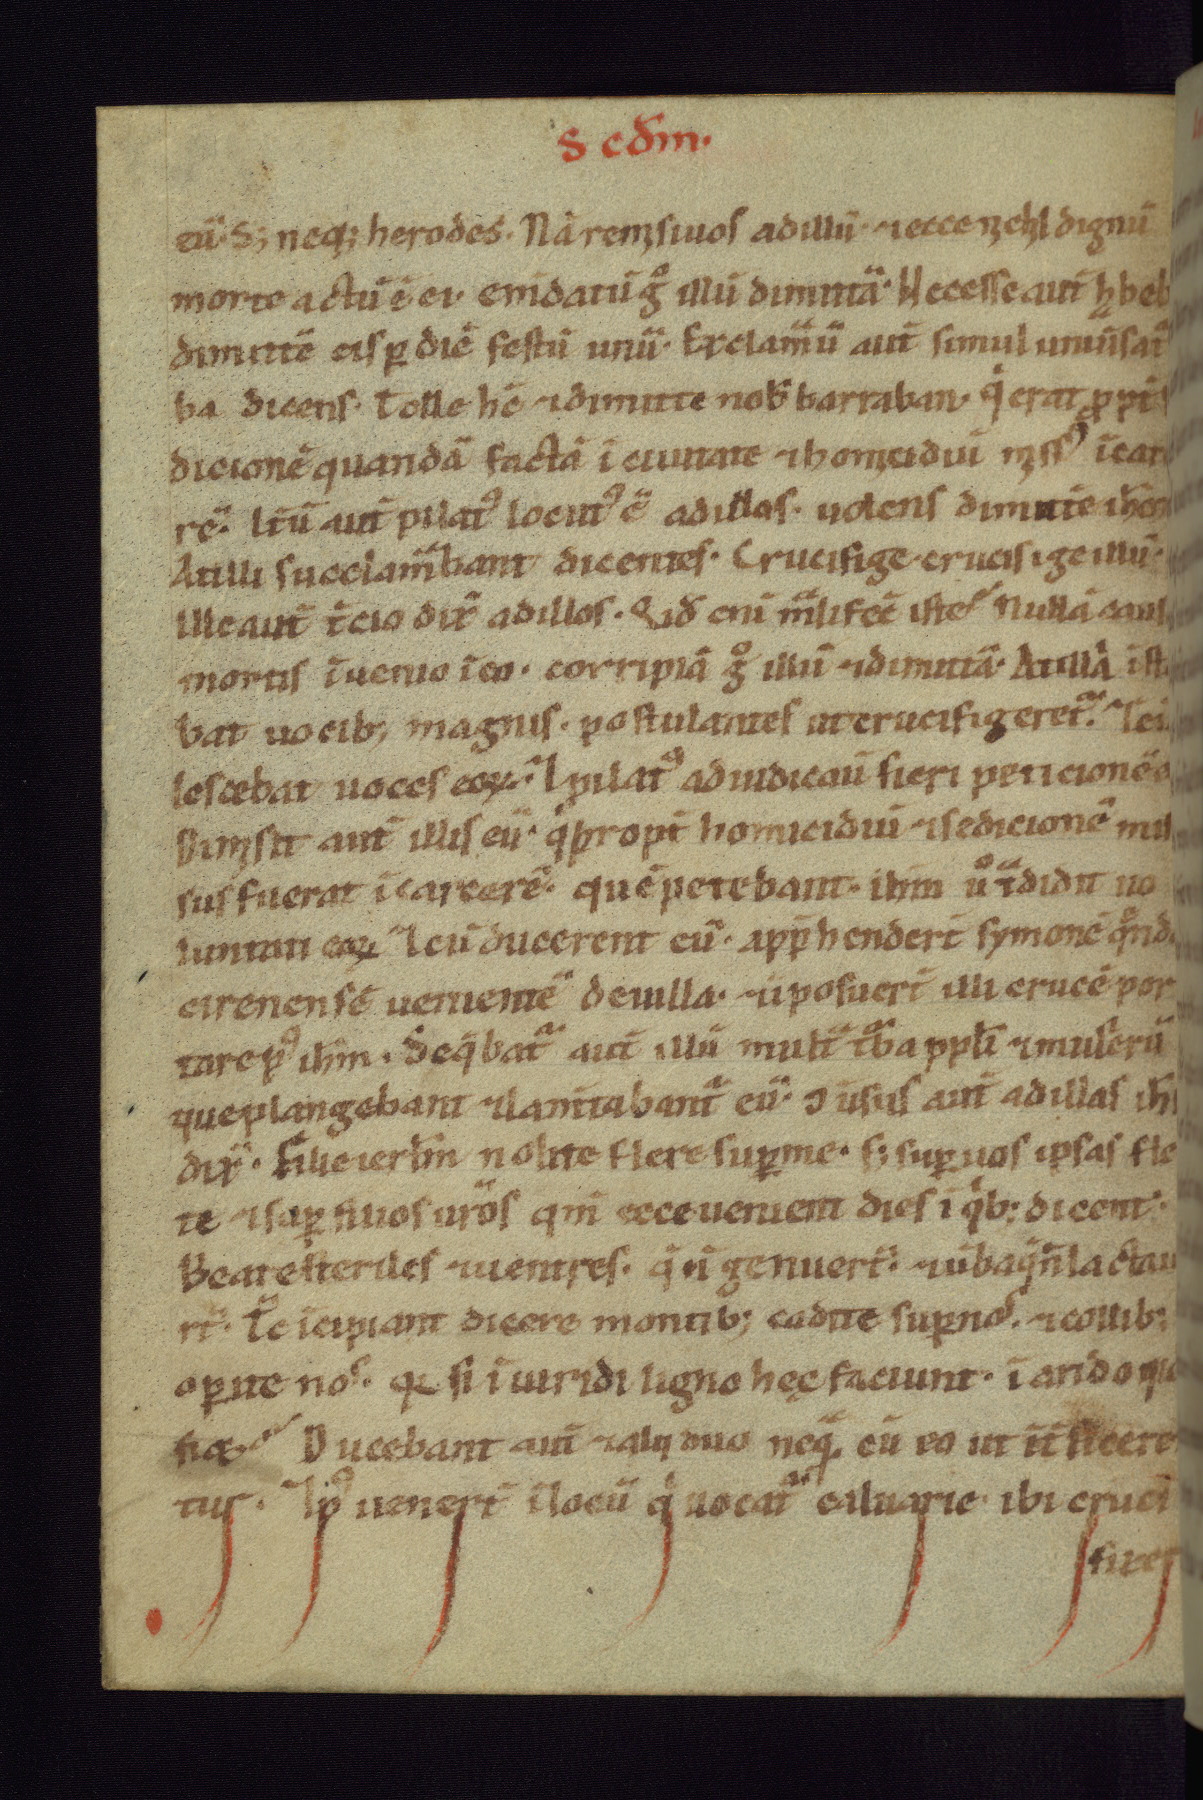 s cd̄m.
tū. S; neq; herodes. Nā remisi uos ad illū. ⁊ ecce nichil dignū
morte actū ē ei. emdatū gͦ illū dimittā. Necesse aut̄ h
dimitte᷑ eis ꝑ diē festū unū. Exclamau᷑ aut̄ simul uniu᷑sa t᷑
ba dicens. Tolle hc̄ ⁊ dimitte nob̄ barraban. qͥ erat ꝓpt᷑
dicionē quandā factā ī ciuitate ⁊ homicidiū miss᷒ ī car
re. It᷑ū aut̄ pilat᷒ locut᷒ ē ad illos. uolens dimitte᷑
At illi succlamabant dicentes. Crucifige crucifige illū.
Ille aut̄ t᷑cio dix̄ ad illos. Qid eni malı fec̄ iste Nullā
mortis īuenio ī eo. corripiā gͦ illū ⁊ dimittā. At illi
bat uocib; magnis. postulantes ut crucifigeret᷑.
lescebat uoces eoꝝ. ⁊ pilat᷒ adiudicau᷑ fieri peticionē
Dimisit aut̄ illis eū. qͥ ꝓpt᷑ homicidiū ⁊ sedicionē
sus fuerat ī carcerē. quē petebant. ih̄m ūͦ t᷑didit uo
luntati eoꝝ ⁊ cū ducerent eū. app̄hendert̄ symonē
cirenensē uenientē de uilla. ⁊ īposuert̄ illi crucē por
tare p᷒ ih̄m. Seqͣbat᷑ aut̄ illū multa t᷑ba ppl̄i ⁊ mulierū
que plangebant ⁊ lam̄tabant᷑ eū. Ɔuersus aut̄ ad illas
dix̄. Filie ierl̄m nolite flere suꝑ me. s; suꝑ uos ipsas fle
te ⁊ suꝑ filios ur̄os qm̄ ecce uenient dies ī qͥb; dicent.
Beate steriles ⁊ uentres. qͥ n̄ genuert̄. ⁊ ub᷑a q̄ n̄ lactau
rt̄. Tc̄ īcipiant dicere montib; cadite suꝑ nos. ⁊ collib;
oꝑite nos. qꝛ si ī uiridi ligno hęc faciunt. ī arido
fiet. Ducebant᷑ aut̄ ⁊ alij duo neq̄. cū eo ut īt᷑ficeren
tur. ⁊ p᷒ uenert̄ ī locū qͥ uocat᷑ caluarie. ibi cruci
fixer